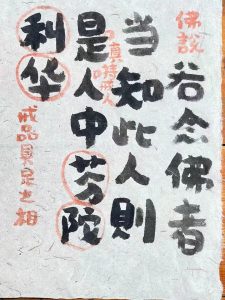 佛說
若念佛者
当知此人則
真持戒人
是人中芬陀
利华
戒品具足之相